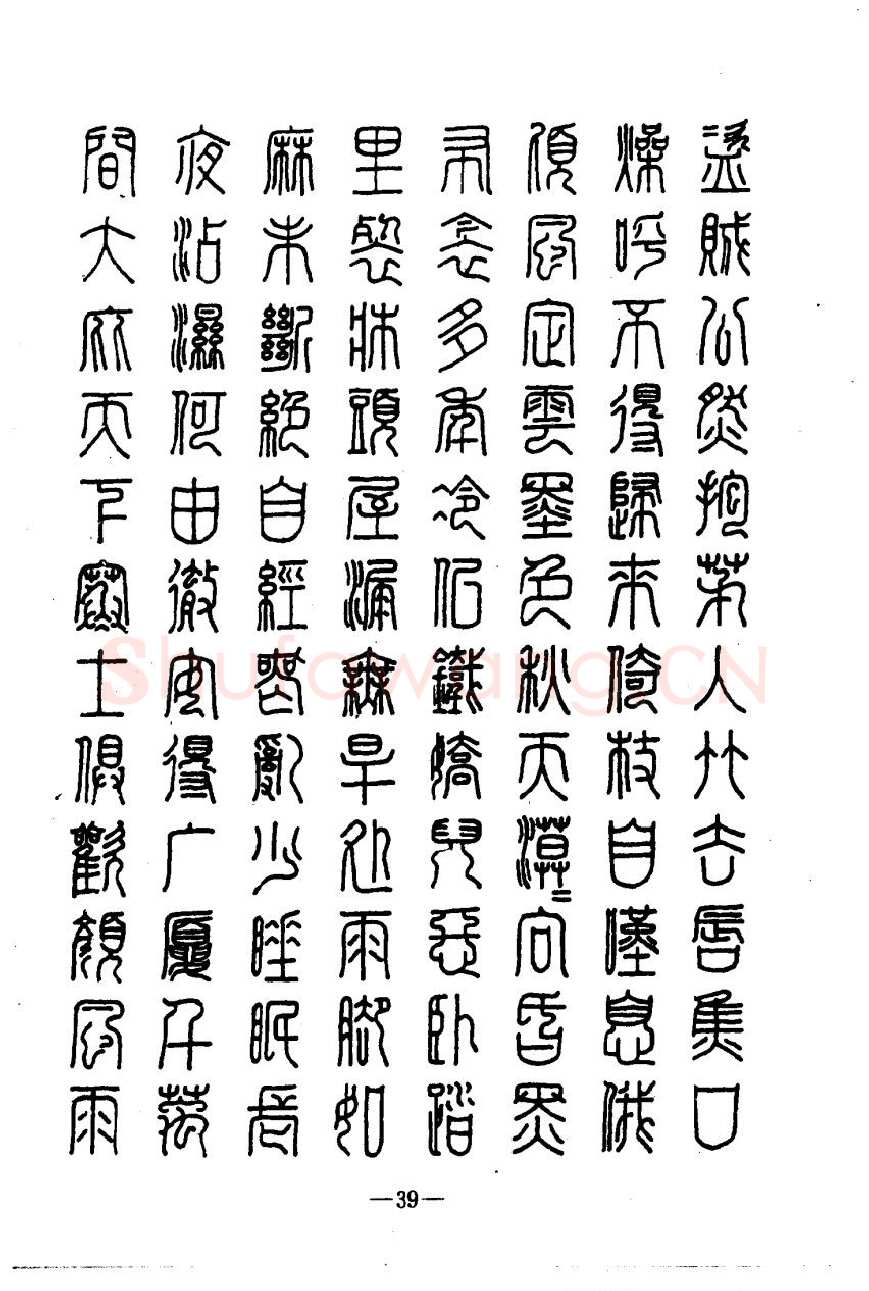 盜賊公然抱茅入竹去脣焦口
燥呼不得歸來倚杖自嘆息俄
頃風定雲墨色秋天漠〻向昏黑
布衾多年冷似鐵嬌兒惡臥踏
里裂牀頭屋漏無旱処雨腳如
麻未斷絕自經喪亂少睡眠長
夜沾濕何由徹安得广廈千萬
間大庇天下寒士俱歡顏風雨
—39—
Shufawang.CN